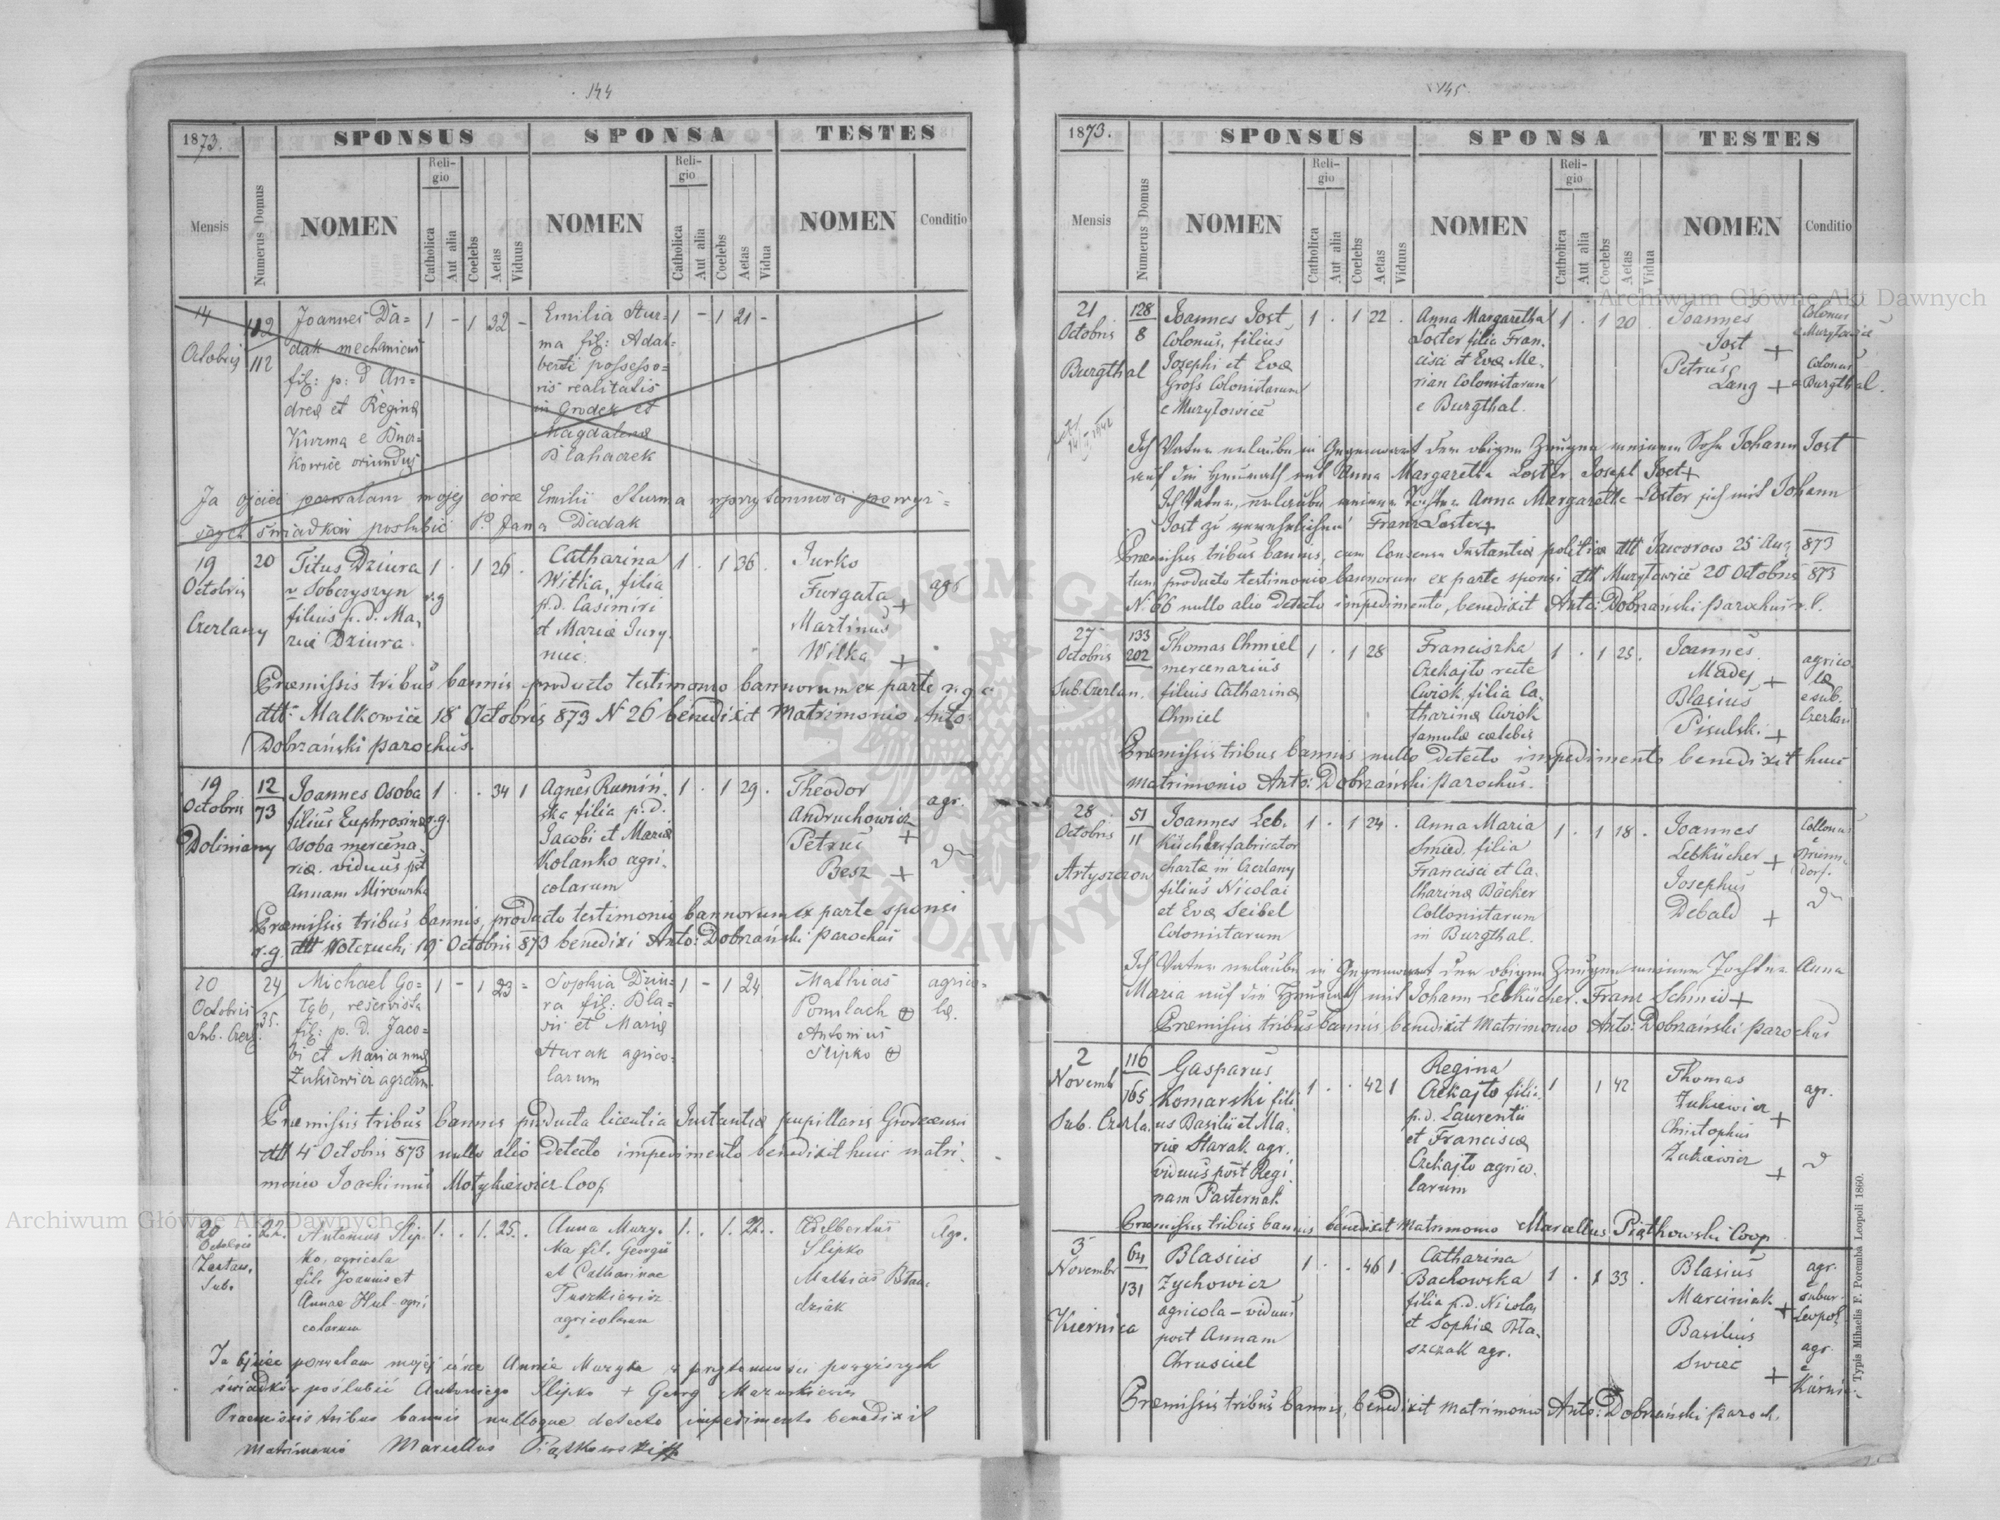 144
1873.
SPONSUS
SPONSA
TESTES
Mensis
Numerus Domus
NOMEN
Religio
Catholica
Aut alia
Coelebs
Aetas
Viduus
NOMEN
Religio
Catholica
Aut alia
Coelebs
Aetas
Vidua
NOMEN
Conditio
14
Octobris
112
Joannes Da=
dak mechanicus
fil: p: d An=
dreæ et Reginæ
Kurma e
oriundus
1 - 1 32 -
Emilia Stur=
ma fil: Adal=
berti possesso=
ris realitatis
in Grodek et
Magdalenæ
Blahaczek
1 - 1 21 -
Ja ojciec pozwalam mojej córce Emilii Sturma w przytomności powyż=
szych świadków poslubić P. Jana Dadak
19
Octobris
Czerlany
20
Titus Dziura
v Sobczyszyn
filius p. d. Ma,
riæ Dziura.
r.g
1 . 1 26 .
Catharina
Witka, filia
p.d. Casimiri
et Mariæ Jury,
niec.
1 . 1 36 .
Jurko
Furgata +
Martinus
Wilka +
agr
Præmissis tribus bannis producto testimonio bannorum ex parte r. g. e
dtt: Malkowice 18 Octobris 873 N 26 benedixit Matrimonio Anto:
Dobrzański parochus.
19
Octobris
Doliniany
12
73
Joannes Osoba
filius Euphrosinæ
Osoba mercena,
riæ. viduus pst
Annam Mirowska
r.g.
1 . . 34 1
Agnes Rumiń,
ska filia p.d.
Jacobi et Mariæ
Kolanko agri,
colarum
1 . 1 29 .
Theodor
Andruchowicz
+
Petrus
Besz +
agr.
Præmissis tribus bannis, producto testimonio bannorum ex parte sponsi
r.g. dtt 19 Octobris 873 benedixi Anto: Dobrzański parochus
20
Octobris
Sub. Czerl.
24
35.
Michael Go=
łąb, reservista
fil: p. d. Jaco=
bi et Mariannæ
Zukiewicz
1 - 1 23 -
Sophia Dziu=
ra fil: Bla=
sii et Mariæ
Starak agrico=
larum
1 - 1 24
Mathias
Pomlach +
Antonius
Slipko +
agrico=
læ.
Præmissis tribus bannis producta licentia Instantiæ pupillaris
dtt 4 Octobris 873 nullo alio detecto impedimento benedixit huic matri,
monio Joachimus Motykiewicz Coop
20
Octobris
22.
Antonius Slip
ko, agricola
fil: Joannis et
Annae Hul agri,
colarum
1 . . 1. 25 . .
Anna Mury,
ka fil. Georgii
et Catharinae
Tuszkiewicz
agricolarum
1 . . 1. 22 . .
Adelbertus
Slipko
Mathias
Agr.
Ja Ojciec pozwalam mojej córce Annie Muryka w przytomności powyższych
świadków poślubić Antoniego Slipko + Georg
Praemissis tribus bannis nulloque detecto impedimento benedixit
Matrimonio Marcellus Piątkowski
145
1873.
SPONSUS
SPONSA
TESTES
Mensis
Numerus Domus
NOMEN
Religio
Catholica
Aut alia
Coelebs
Aetas
Viduus
NOMEN
Religio
Catholica
Aut alia
Coelebs
Aetas
Vidua
NOMEN
Conditio
21
Octobris
Burgthal
128
8
Joannes Jost
Colonus, filius
Josephi et Evæ
Gross Colonistarum
e Muzyłowice
1 . 1 22 .
Anna Margaretha
Loster filia Fran,
cisci et Evæ Me,
rian Colonistarum
e Burgthal.
1 . 1 20 .
Joannes
Jost +
Petrus
Lang +
Colonus
e Muzyłowice
Colonus
e Burgthal.
Ich Vater erlaube in Gegenwart der obigen Zeugen meinem Sohn Johann Jost
auf die Heurath mit Anna Margaretha Loster Joseph Jost +
Ich Vater, erlaube meiner Tochter Anna Margaretha Loster sich mit Johann
Jost zu verehelichen Franz Loster +
Præmissis tribus bannis, cum Consensu Instantiæ politicæ dtt Jaworow 25 Aug 873
tum producto testimonio bannorum ex parte sponsi dtt Muzyłowice 20 Octobris 873
N. 66 nullo alio detecto impedimento, benedixit Anto: Dobrzański parochus r. l.
27
Octobris
Sub. Czerlan.
133
202
Thomas Chmiel
mercenarius
filius Catharinæ
Chmiel
1 . 1 28
Franciszka
Czekajło recte
Cwiok, filia Ca,
tharinæ Cwiok
famulæ cælebis
1 . 1 25 .
Joannes
Madej +
Blasius
Pisulski +
agrico
læ
e sub.
Czerlan
Præmissis tribus bannis nullo detecto impedimento benedixit huic
matrimonio Anto: Dobrzański parochus.
28
Octobris
Artyszczow
51
11
Joannes Leb,
Kücher fabricator
chartæ in Czerlany
filius Nicolai
et Evæ Seibel
Colonistarum
1 . 1 24 .
Anna Maria
Smied, filia
Francisci et Ca,
tharinæ Bäcker
Collonistarum
in Burgthal.
1 . 1 18 .
Joannes
Lebkücher +
Josephus
Debald +
Collonus
e
Brunn,
dorf.
Ich Vater erlaube in Gegenwart der obigen Zeugen meiner Tochter Anna
Maria auf die Heurath mit Johann Lebkücher. Franz Schmid +
Præmissis tribus bannis benedixit Matrimonio Anto: Dobrzański parochus
2
Novemb
Sub. Czerla.
116
165
Gasparus
Komarski fili,
us Basilii et Ma,
riæ Starak agr.
viduus post Regi,
nam Pasternak.
1 . . 42 1
Regina
Czekajło filia
p.d. Laurentii
et Franciscæ
Czekajło agrico,
larum
1 1 42
Thomas
Zukiewicz
+
Christophus
Zukiewicz
+
agr.
Præmissis tribus bannis benedixit Matrimonio Marcellus Piątkowski Coop
3
Novembr
Kiernica
64
131
Blasius
Zychowicz
agricola - viduus
post Annam
Chrusciel
1 . . 46 1.
Catharina
Bachowska
filia p.d. Nicolai
et Sophiæ Pta,
szczak agr.
1 . 1 33 .
Blasius
Marciniak
+
Basilius
Swiec
+
agr.
e
subur.
Leopol,
agr.
e
Kierni.
Præmissis tribus bannis, benedixit Matrimonio Anto: Dobrzański paroch.
Typis Mihaelis F. Poremba Leopoli 1860.
Archiwum Główne Akt Dawnych
Archiwum Główne Akt Dawnych
ARCHIWUM GŁÓWNE AKT DAWNYCH